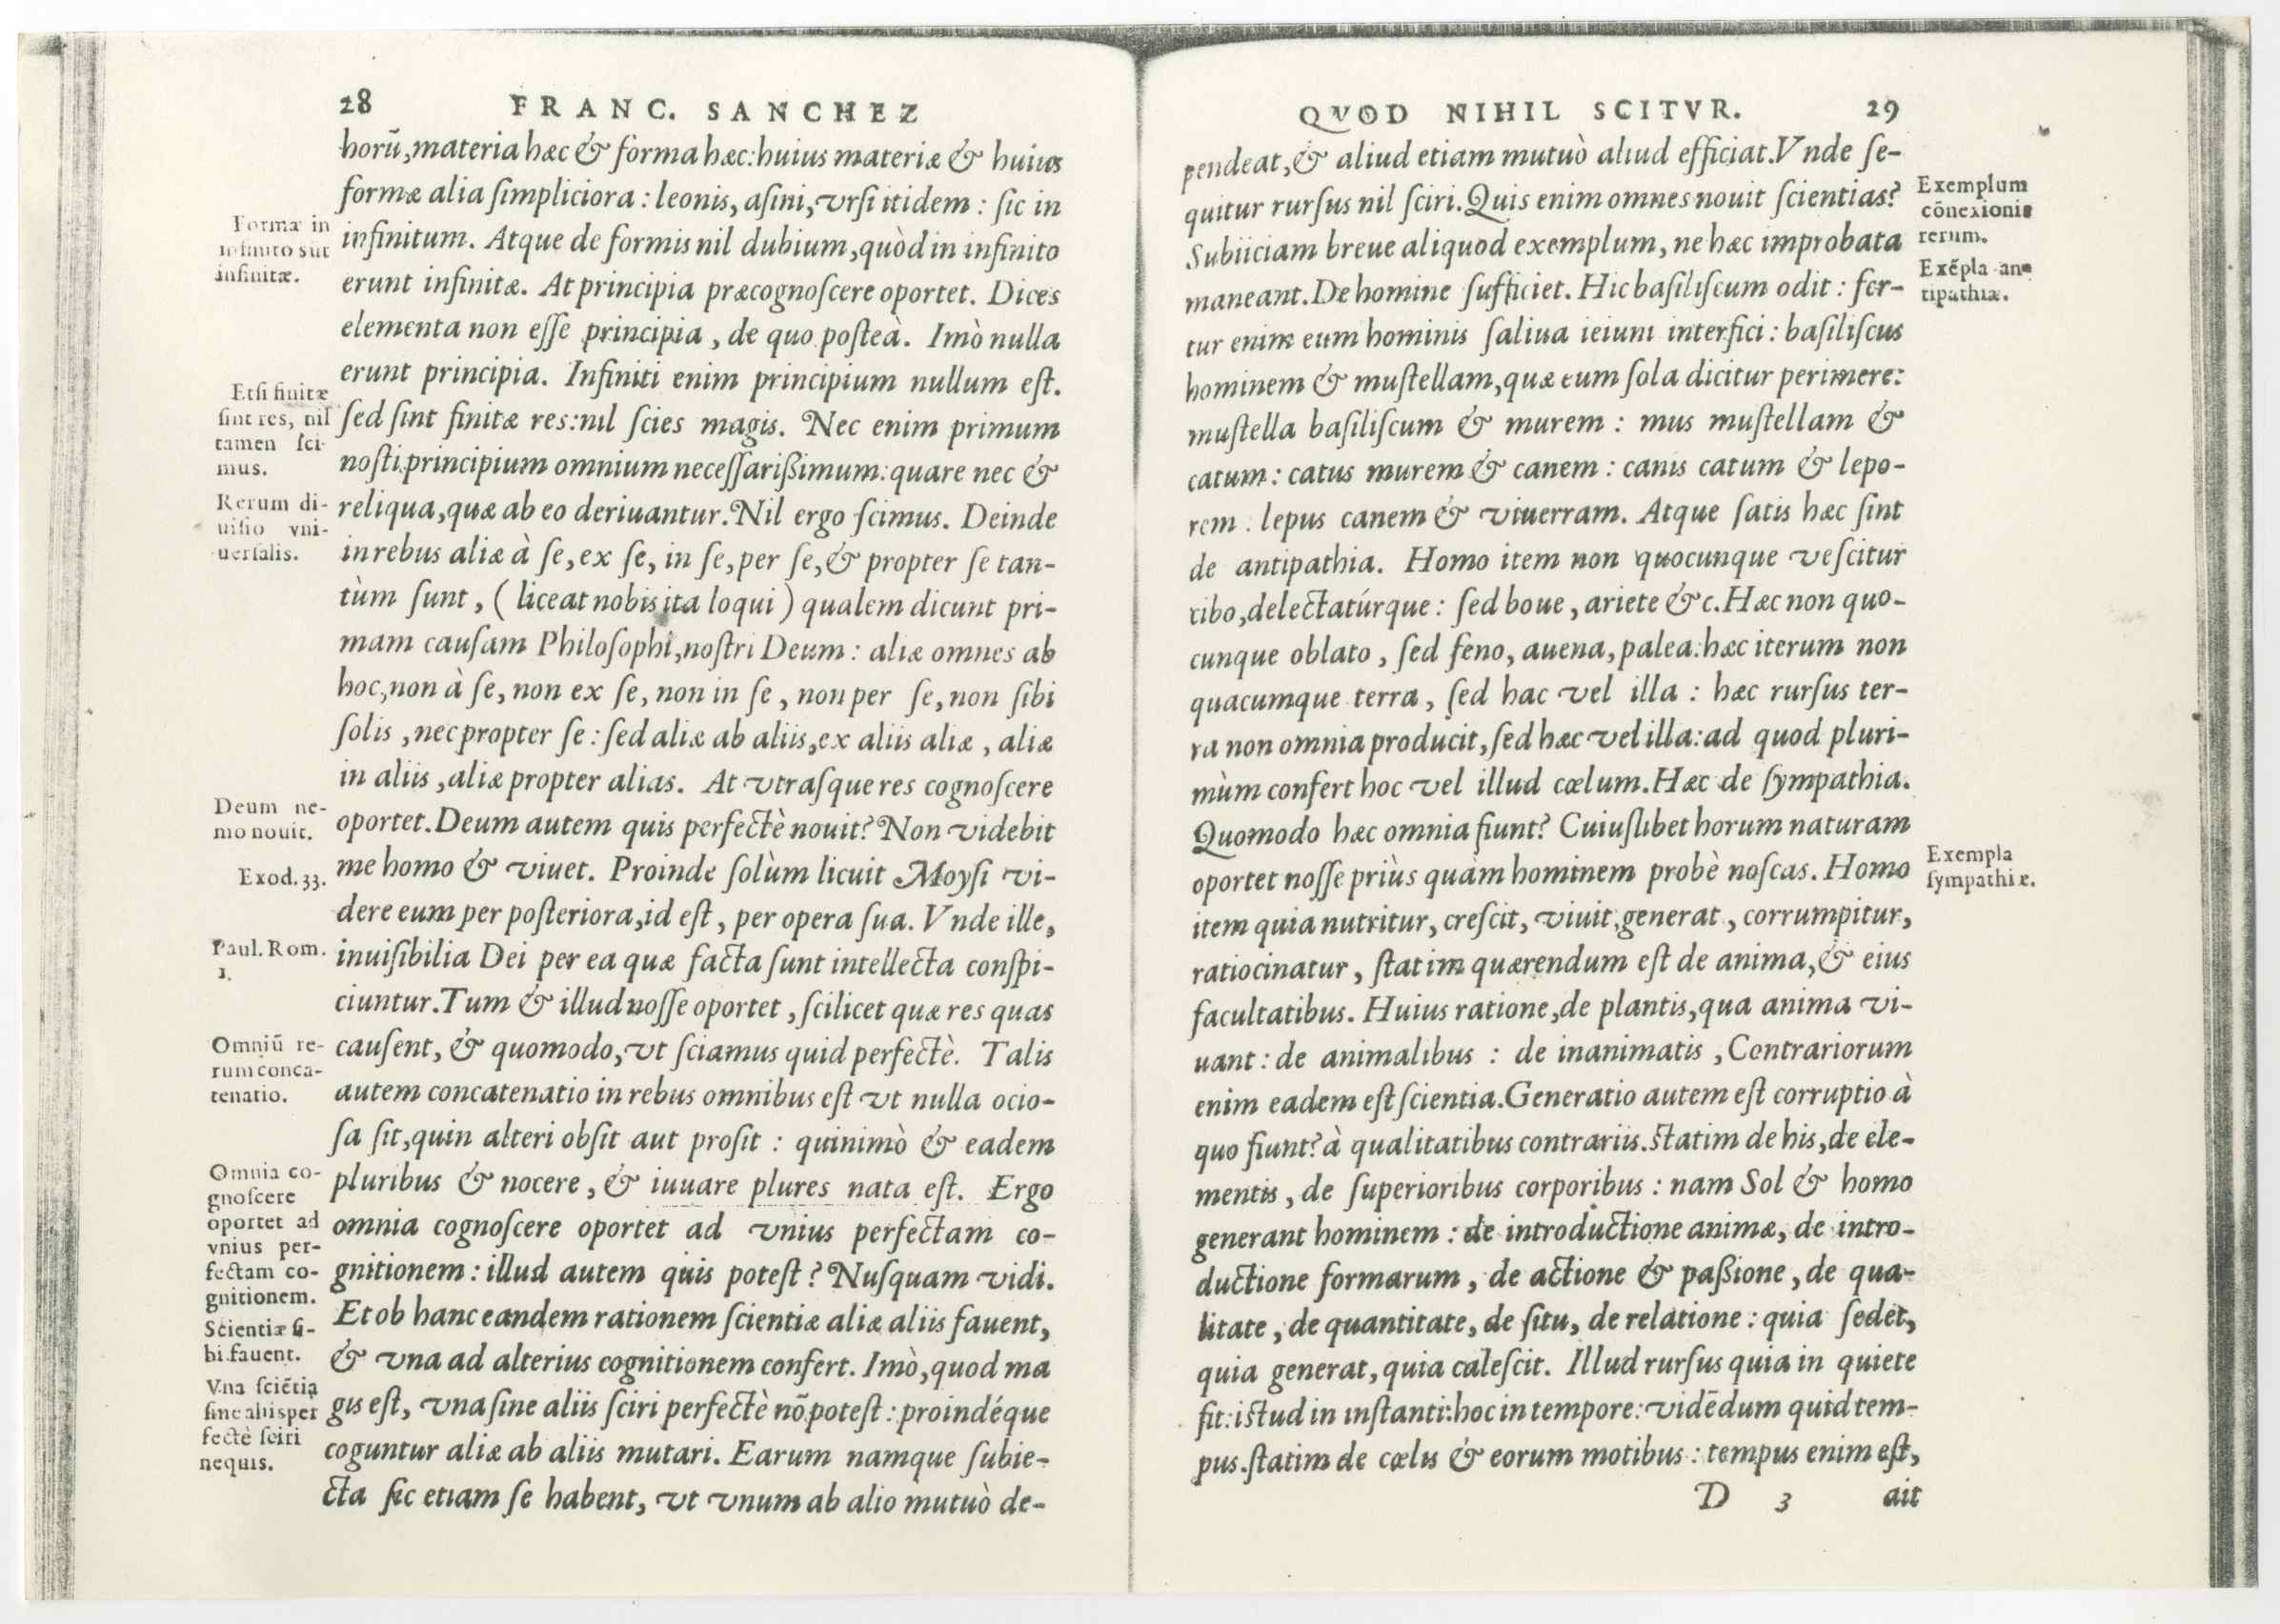 28 FRANC. SANCHEZ
horũ, materia hæc & forma hæc: huius materiæ & huius
formæ alia ſimpliciora: leonis, aſini, vrſi itidem: ſic in
infinitum. Atque de formis nil dubium, quòd in infinito
erunt infinitæ. At principia præcognoſcere oportet. Dices
elementa non eſſe principia, de quo poſteà. Imò nulla
erunt principia. Infiniti enim principium nullum eſt.
ſed ſint finitæ res: nil ſcies magis. Nec enim primum
noſti principium omnium neceſſarißimum: quare nec &
reliqua, quæ ab eo deriuantur. Nil ergo ſcimus. Deinde
in rebus aliæ à ſe, ex ſe, in ſe, per ſe, & propter ſe tan-
tùm ſunt, (liceat nobis ita loqui) qualem dicunt pri-
mam cauſam Philoſophi, noſtri Deum: aliæ omnes ab
hoc, non à ſe, non ex ſe, non in ſe, non per ſe, non ſibi
ſolis, nec propter ſe: ſed aliæ ab aliis, ex aliis aliæ, aliæ
in aliis, aliæ propter alias. At vtraſque res cognoſcere
oportet. Deum autem quis perfectè nouit? Non videbit
me homo & viuet. Proinde ſolùm licuit Moyſi vi-
dere eum per poſteriora, id eſt, per opera ſua. Vnde ille,
inuiſibilia Dei per ea quæ facta ſunt intellecta conſpi-
ciuntur. Tum & illud noſſe oportet, ſcilicet quæ res quas
cauſent, & quomodo, vt ſciamus quid perfectè. Talis
autem concatenatio in rebus omnibus eſt vt nulla ocio-
ſa ſit, quin alteri obſit aut proſit: quinimò & eadem
pluribus & nocere, & iuuare plures nata eſt. Ergo
omnia cognoſcere oportet ad vnius perfectam co-
gnitionem: illud autem quis poteſt? Nuſquam vidi.
Et ob hanc eandem rationem ſcientiæ aliæ aliis fauent,
& vna ad alterius cognitionem confert. Imò, quod ma
gis eſt, vna ſine aliis ſciri perfectè nõ poteſt: proindéque
coguntur aliæ ab aliis mutari. Earum namque ſubie-
cta ſic etiam ſe habent, vt vnum ab alio mutuò de-
Formæ in
infinito sũt
infinitæ.
Etſi finitæ
ſint res, nil
tamen ſci-
mus.
Rerum di-
uiſio vni-
uerſalis.
Deum ne-
mo nouit.
Exod. 33.
Paul. Rom.
1.
Omniũ re-
rum conca-
tenatio.
Omnia co-
gnoſcere
oportet ad
vnius per-
fectam co-
gnitionem.
Scientiæ ſi-
bi fauent.
Vna ſciẽtia
ſine aliis per
fectè ſciri
nequis.
QVOD NIHIL SCITVR. 29
pendeat, & aliud etiam mutuò aliud efficiat. Vnde ſe-
quitur rurſus nil ſciri. Quis enim omnes nouit ſcientias?
Subiiciam breue aliquod exemplum, ne hæc improbata
maneant. De homine ſufficiet. Hic baſiliſcum odit: fer-
tur enim eum hominis ſaliua ieiuni interfici: baſiliſcus
hominem & muſtellam, quæ eum ſola dicitur perimere:
muſtella baſiliſcum & murem: mus muſtellam &
catum: catus murem & canem: canis catum & lepo-
rem: lepus canem & viuerram. Atque ſatis hæc ſint
de antipathia. Homo item non quocunque veſcitur
cibo, delectatúrque: ſed boue, ariete &c. Hæc non quo-
cunque oblato, ſed feno, auena, palea: hæc iterum non
quacumque terra, ſed hac vel illa: hæc rurſus ter-
ra non omnia producit, ſed hæc vel illa: ad quod pluri-
mùm confert hoc vel illud cœlum. Hæc de ſympathia.
Quomodo hæc omnia fiunt? Cuiuſlibet horum naturam
oportet noſſe priùs quàm hominem probè noſcas. Homo
item quia nutritur, creſcit, viuit, generat, corrumpitur,
ratiocinatur, ſtatim quærendum eſt de anima, & eius
facultatibus. Huius ratione, de plantis, qua anima vi-
uant: de animalibus: de inanimatis, Contrariorum
enim eadem eſt ſcientia. Generatio autem eſt corruptio à
quo fiunt? à qualitatibus contrariis. ſtatim de his, de ele-
mentis, de ſuperioribus corporibus: nam Sol & homo
generant hominem: de introductione animæ, de intro-
ductione formarum, de actione & paßione, de qua-
litate, de quantitate, de ſitu, de relatione: quia ſedet,
quia generat, quia caleſcit. Illud rurſus quia in quiete
fit: iſtud in inſtanti: hoc in tempore: vidẽdum quid tem-
pus. ſtatim de cœlis & eorum motibus: tempus enim eſt,
D 3 ait
Exemplum
cõnexionis
rerum.
Exẽpla an-
tipathiæ.
Exempla
ſympathiæ.